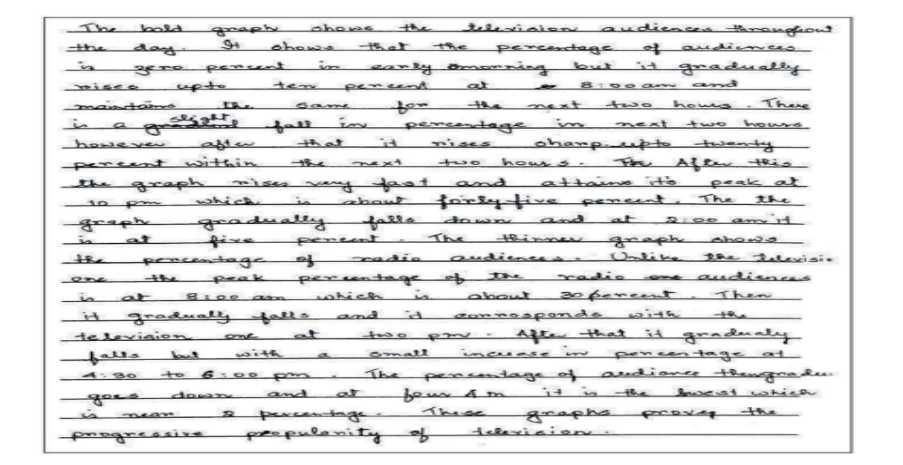 The bold graph shows the television audiences throughout
the day. It shows that the percentage of audiences
is zero percent in early morning but it gradually
rises upto ten percent at 8:00am and
maintains the same for the next two hours. There
is a slight fall in percentage in next two hours
however after that it rises sharp upto twenty
percent within the next two hours. After this
the graph rises very fast and attains its peak at
10 pm which is about forty-five percent. The the
graph gradually falls down and at 2:00 am it
is at five percent. The thinner graph shows
the percentage of radio audiences. Unlike the televisio
one the peak percentage of the radio audiences
is at 8:00 am which is about 30 percent. Then
it gradually falls and it corrosponds with the
television one at two pm. After that it gradualy
falls but with a small increase in percentage at
4:30 to 6:00 pm. The percentage of audiance then gradu
goes down and at four Am it is the lowest which
is near 2 percentage. These graphs proves the
progressive popularity of television.